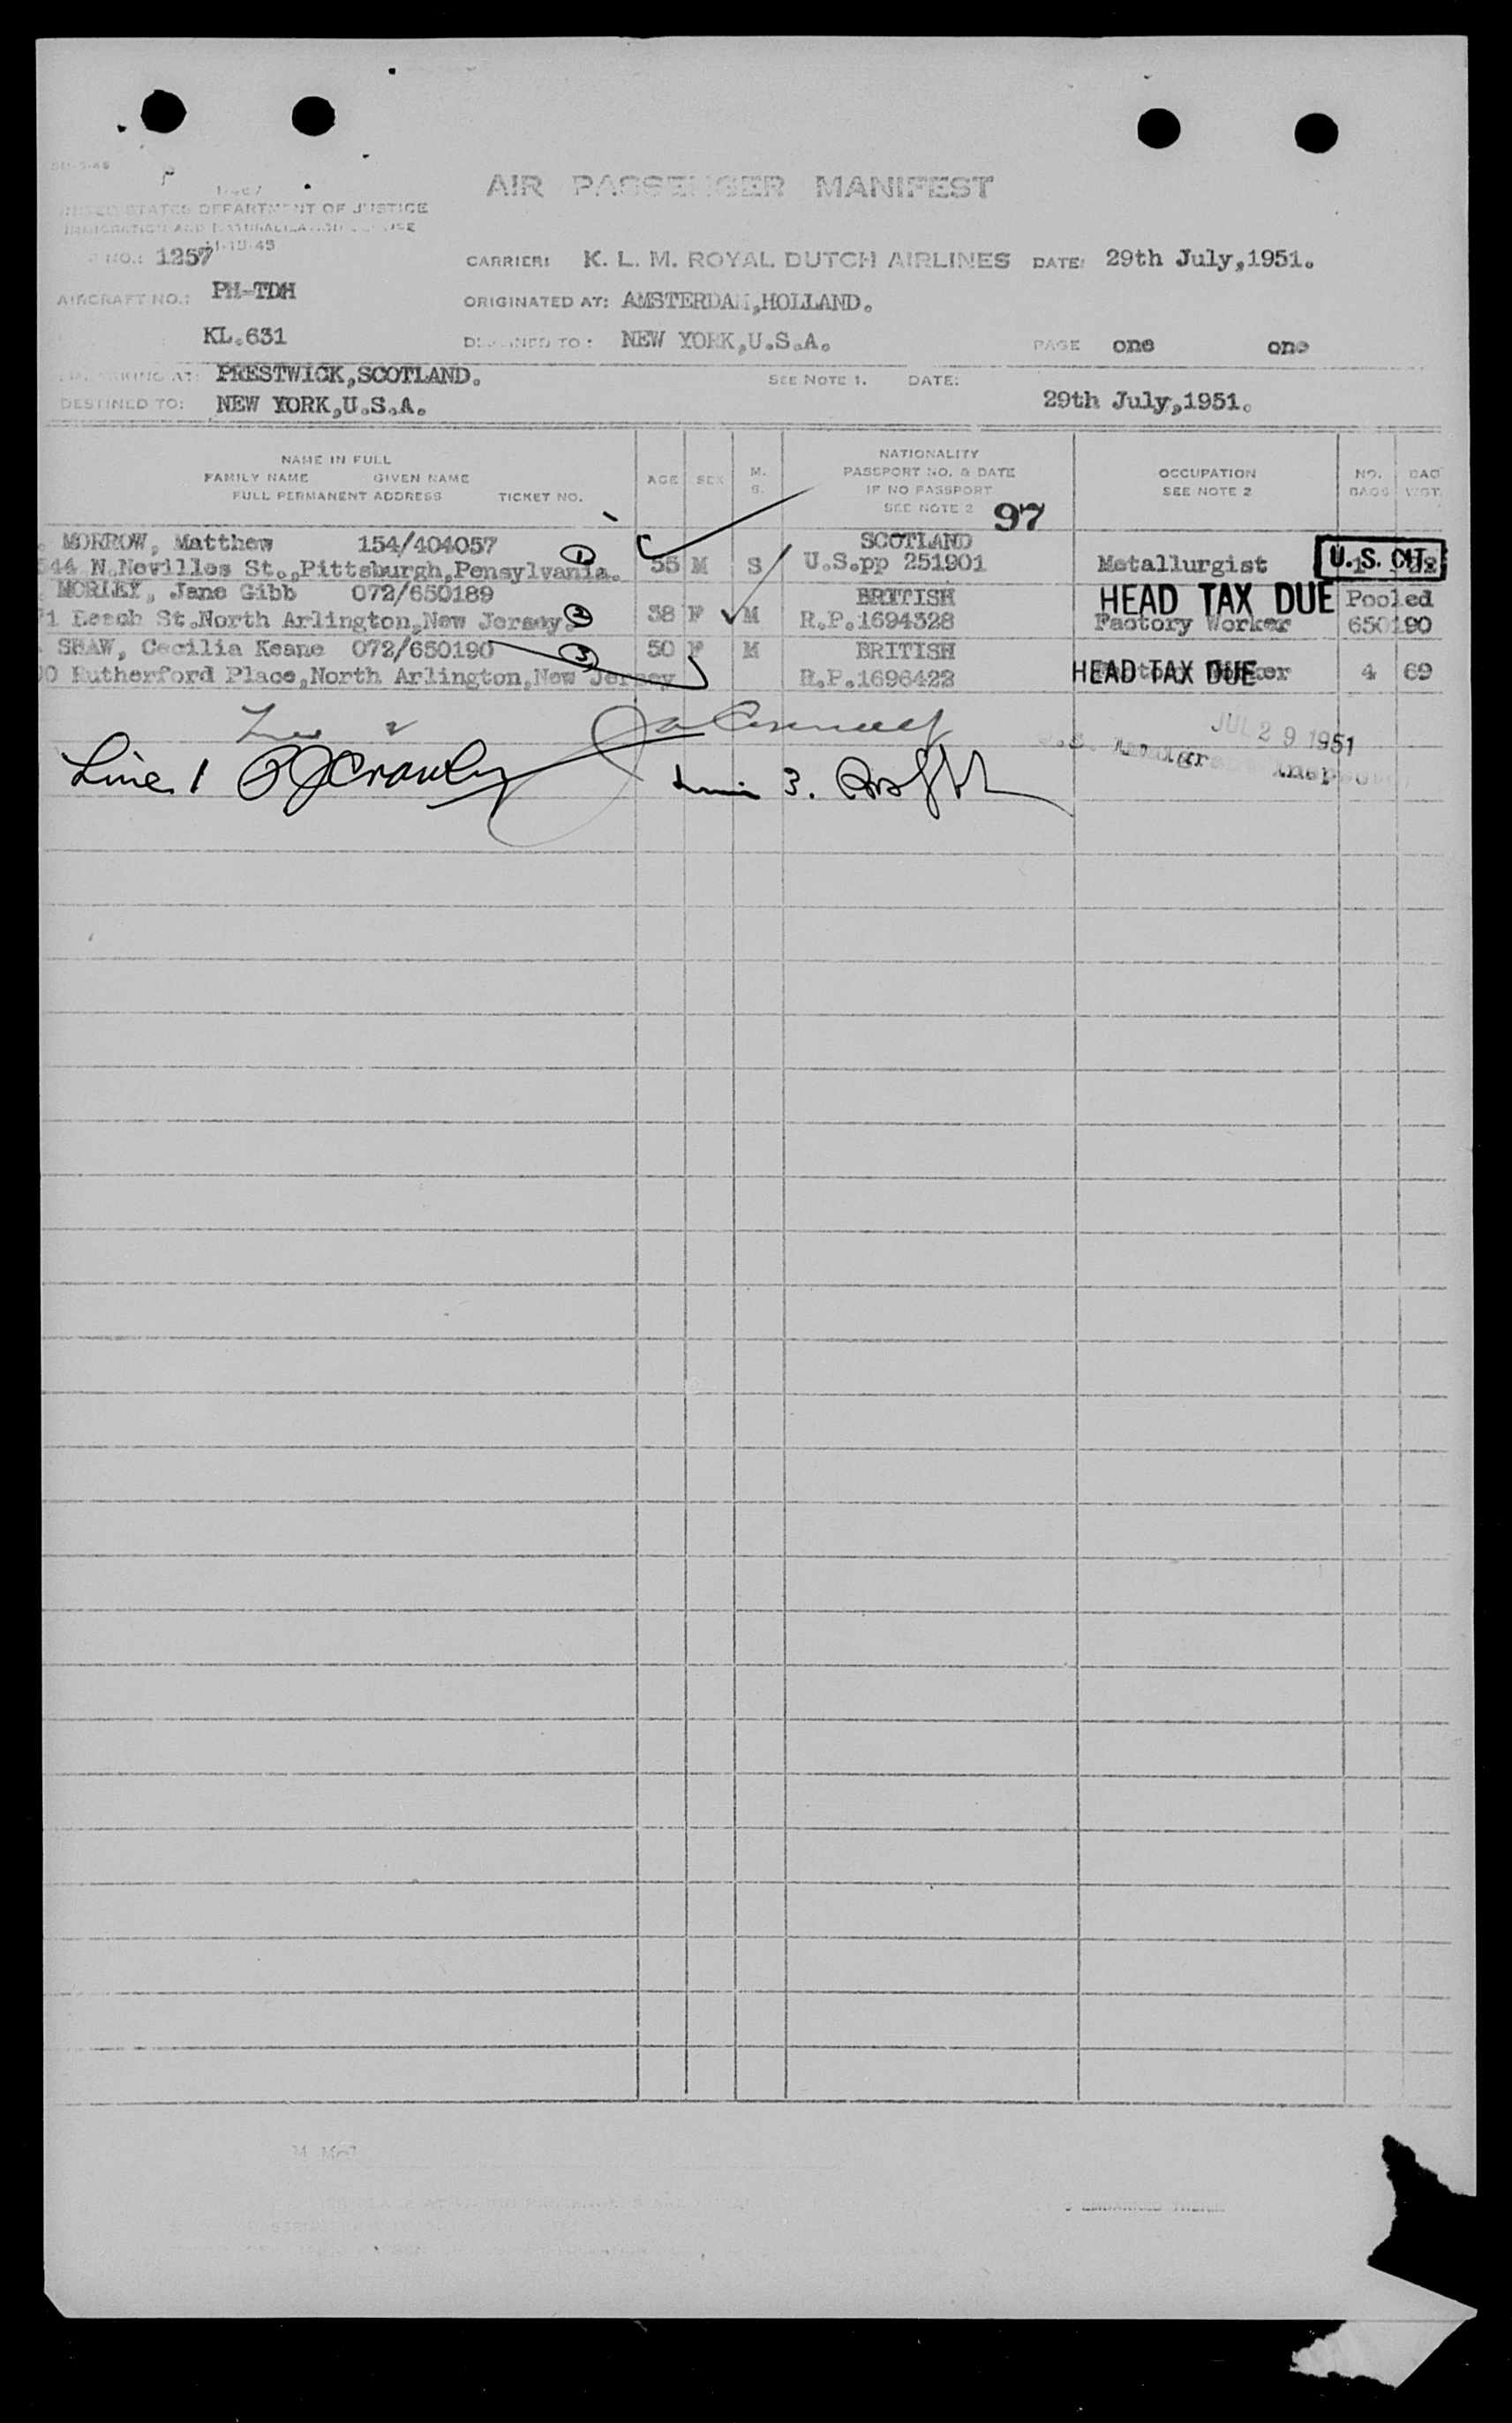 AIR PASSENGER MANIFEST
UNITED STATES DEPARTMENT OF JUSTICE
IMMIGRATION AND NATURALIZATION SERVICE
11-15-45
NO.: 1257
CARRIER: K. L. M. ROYAL DUTCH AIRLINES DATE: 29th July,1951.
AIRCRAFT NO.: PH-TDH
ORIGINATED AT: AMSTERDAM,HOLLAND.
KL.631
DESTINED TO: NEW YORK,U.S.A.
PAGE one one
EMBARKING AT: PRESTWICK,SCOTLAND.
SEE NOTE 1. DATE:
DESTINED TO: NEW YORK,U.S.A.
29th July,1951.
NAME IN FULL
FAMILY NAME GIVEN NAME
FULL PERMANENT ADDRESS TICKET NO.
AGE SEX M. S.
NATIONALITY
PASSPORT NO. & DATE
IF NO PASSPORT
SEE NOTE 2
97
OCCUPATION
SEE NOTE 2
NO. BAGS
BAG WGT.
MORROW, Matthew 154/404057 SCOTLAND
544 N.Nevilles St.,Pittsburgh,Pensylvania. 1 55 M S U.S.pp 251901 Metallurgist U.S. CIT.
MORLEY, Jane Gibb 072/650189 BRITISH HEAD TAX DUE Pooled
71 Beech St.North Arlington,New Jersey. 2 38 F M R.P.1694328 Factory Worker 650190
SHAW, Cecilia Keane 072/650190 3 50 F M BRITISH
00 Rutherford Place,North Arlington,New Jersey R.P.1696423 HEAD TAX DUE 4 69
Line 2
JUL 29 1951
U.S. Immigrant Inspector
Line 1
Line 3.